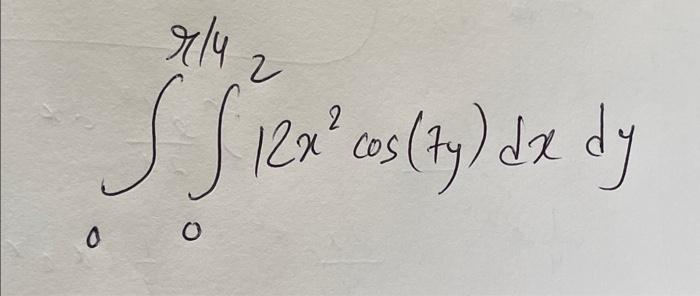 ∫₀^{π/4} ∫₀² 12x² cos(7y) dx dy